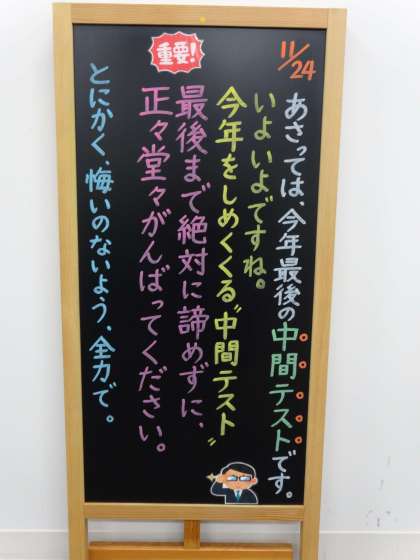 11/24
あさっては、今年最後の中間テストです。
いよいよですね。
今年をしめくくる"中間テスト"
重要!
最後まで絶対に諦めずに、
正々堂々がんばってください。
とにかく、悔いのないよう、全力で。